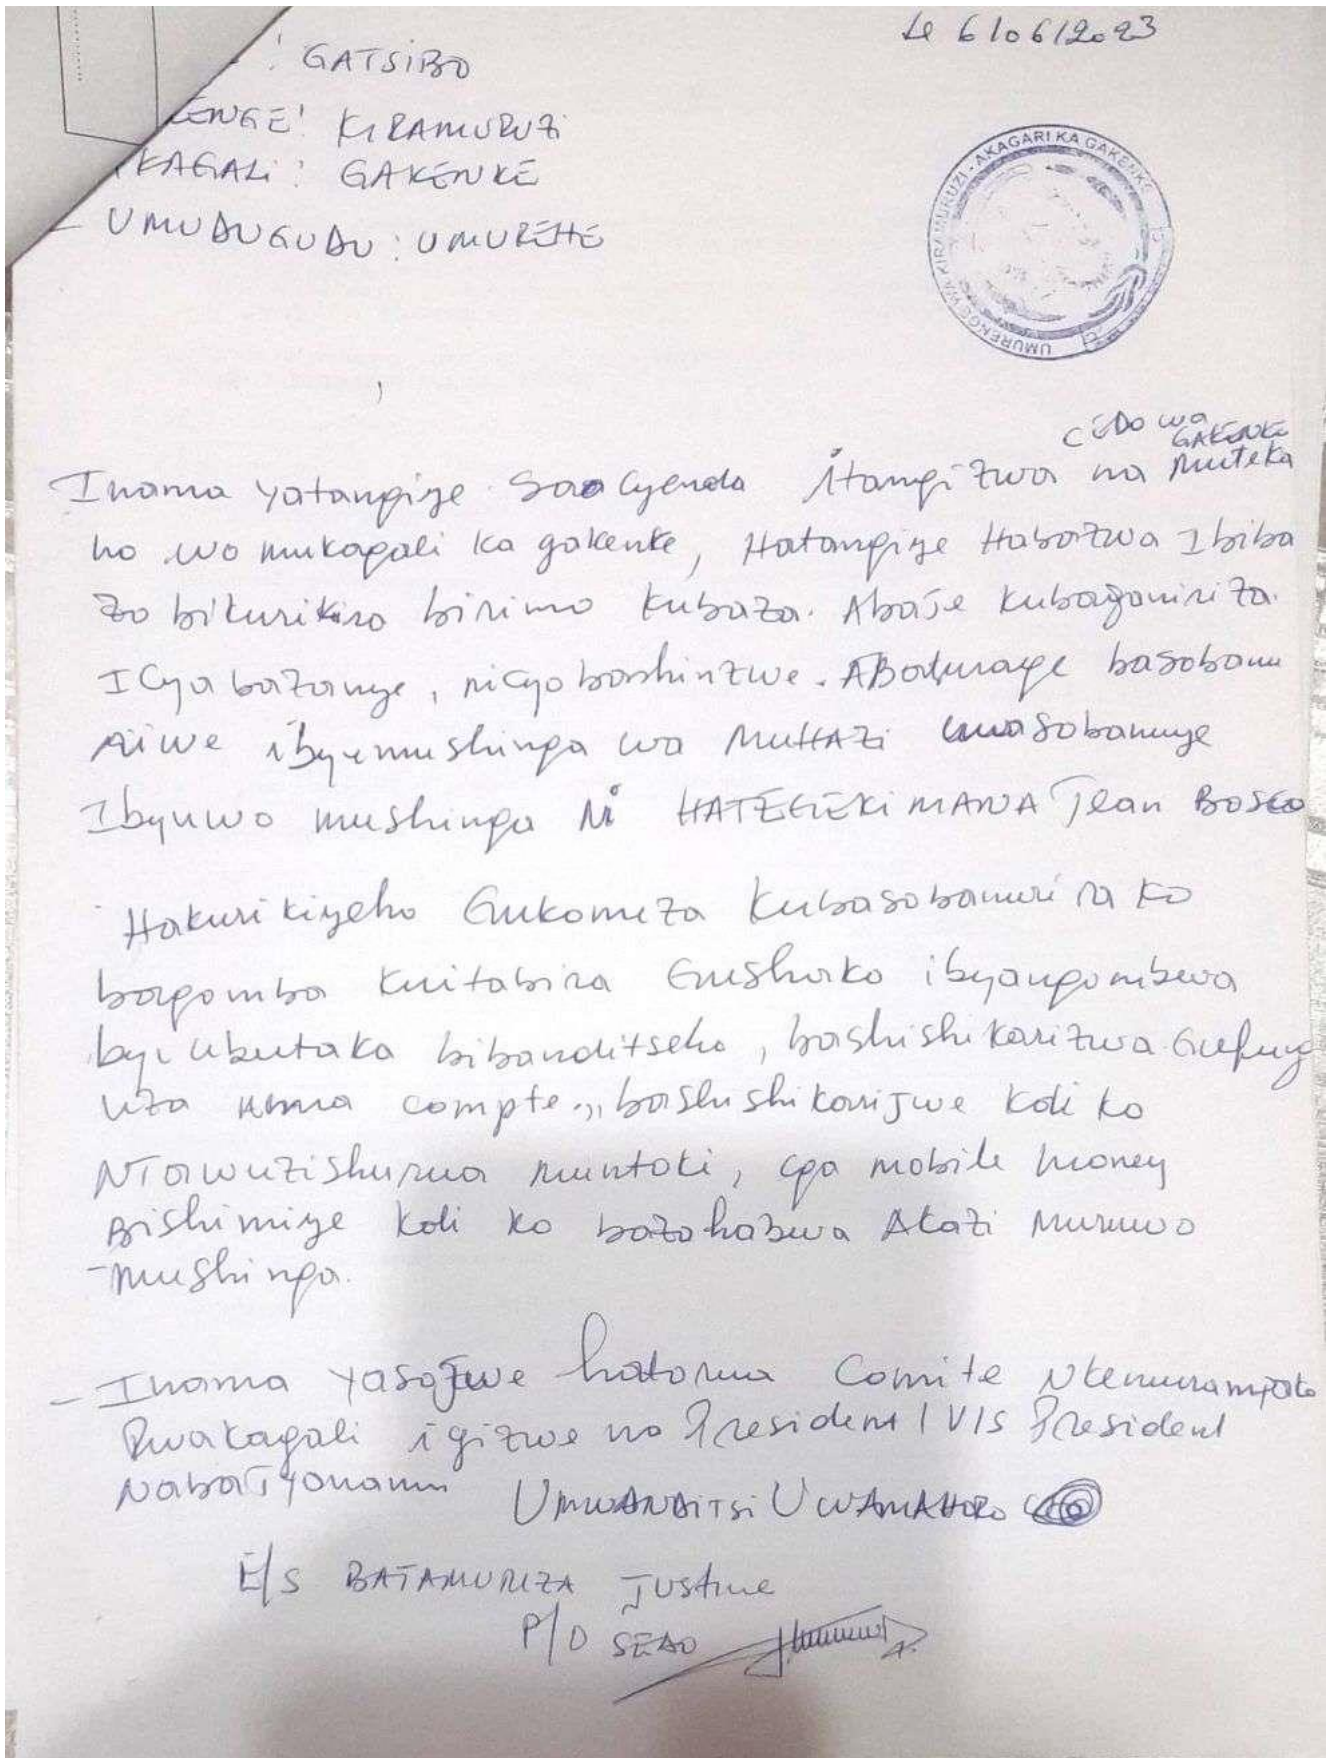 Le 6/06/2023
: GATSIBO
ENGE: KIRAMURUZI
KAGALI: GAKENKE
- UMUDUGUDU: UMUREHE
UMURENGE WA KIRAMURUZI - AKAGARI KA GAKENKE
CEDO wa
GAKENKE
Inama yatangiye Saa Cyenda Itangizwa na Muteka
no wo mukagali ka gakenke, Hatangiye Habazwa Ibiba
zo bikurikira birimo Kubaza. Abaje kubaganiriza.
ICyabazanye, nicyo bashinzwe. ABaturage basobanu
riwe ibyumushinga wa MUHAZi uwasobanuye
Ibyuwo mushinga Ni HATEGEKIMANA Jean BOSCO
Hakurikiyeho Gukomeza Kubasobanurira ko
bagomba kwitabira Gushaka ibyangombwa
byubutaka bibanditseho, bashishikarizwa Gufung
uza compte., bashishikarijwe kodi ko
NTawuzishurwa muntoki, cga mobile money
Bishimiye kodi ko bazahabwa Akazi muruwo
-mushinga.
- Inama yasojwe hatorwa Comite Nkemurampaka
Rwakagali igizwe na President / VIS President
Nabajyanam
UMWANDITSI UWAMAHORO
E/S BATAMURIZA Justine
P/O SEDO